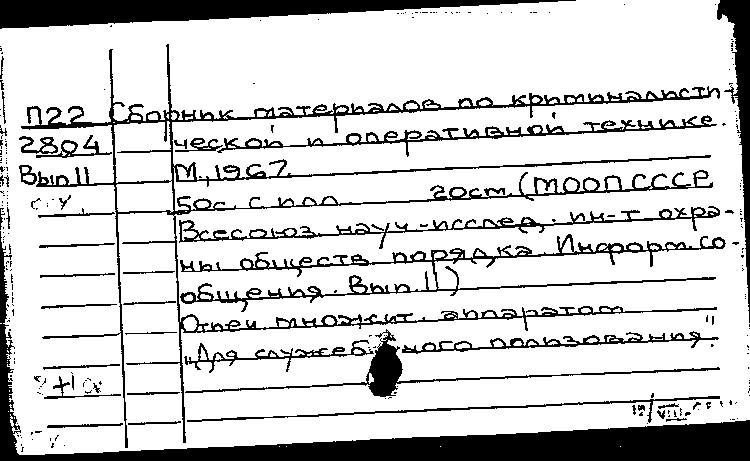 П22 Сборник материалов по криминалисти-
2804 ческой и оперативной технике.
Вып 11 М., 1967.
50с. с илл. 20см. (МООП СССР.
Всесоюз. науч.-исслед. ин-т охра-
ны обществ. порядка. Информ. со-
общения. Вып. 11)
Отпеч. множит. аппаратом
"Для служебного пользования".